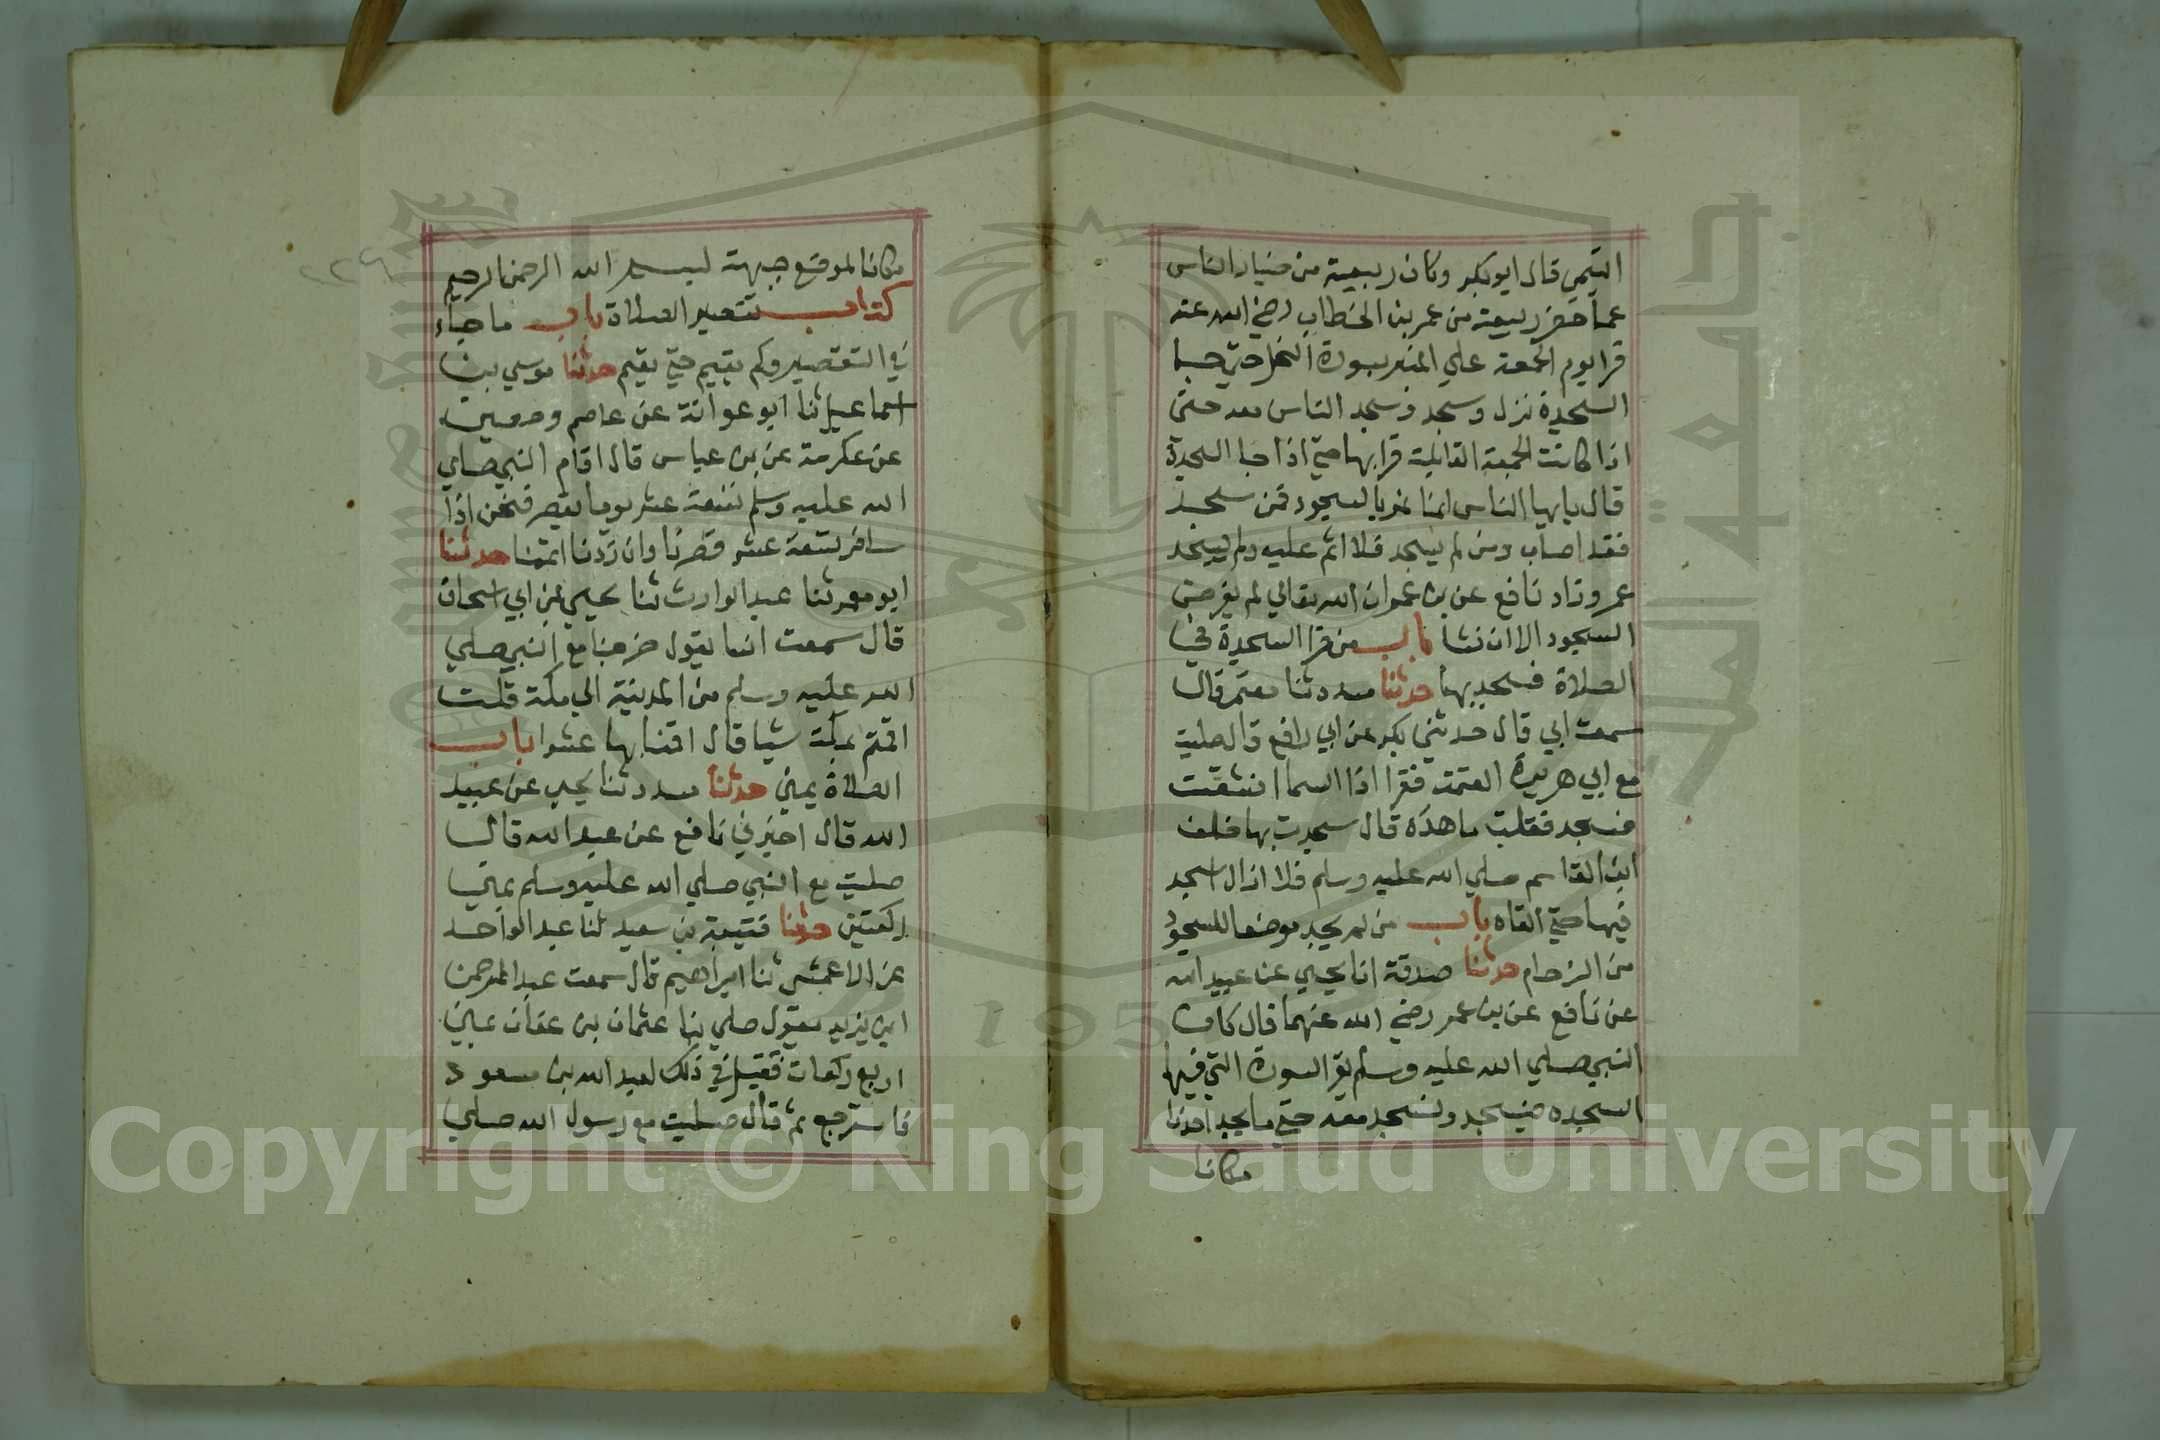 التيمي قال ابو بكر وكان ربيعة من خيار الناس
عما حضر ربيعة من عمر بن الخطاب رضي الله عنه
قرا يوم الجمعة علي المنبر بسورة النحل حتي جا
السجدة نزل وسجد وسجد الناس معه حتي
اذا كانت الجمعة القابلة قرا بها حتي اذا جا السجدة
قال يا ايها الناس انما نمر بالسجود فمن سجد
فقد اصاب ومن لم يسجد فلا اثم عليه ولم يسجد
عمر وزاد نافع عن بن عمر ان الله تعالي لم يفرض
السجود الا ان نشا باب من قرا السجدة في
الصلاة فسجد بها حدثنا مسدد ثنا معتمر قال
سمعت ابي قال حدثني بكر عن ابي رافع قال صليت
مع ابي هريرة العتمة فقرا اذا السما انشقت
فسجد فقلت ما هذه قال سجدت بها خلف
ابي القاسم صلي الله عليه وسلم فلا ازال اسجد
فيها حتي القاه باب من لم يجد موضعا للسجود
من الزحام حدثنا صدقة انا يحيي عن عبيد الله
عن نافع عن بن عمر رضي الله عنهما قال كان
النبي صلي الله عليه وسلم يقرا السورة التي فيها
السجده فيسجد ونسجد معه حتي ما يجد احدنا
مكانا
مكانا لموضع جبهته بسم الله الرحمن الرحيم
كتاب تقصير الصلاة باب ما جاء
في التقصير وكم يقيم حتي يقيم حدثنا موسي بن
اسماعيل ثنا ابو عوانة عن عاصم وحصين
عن عكرمة عن بن عباس قال اقام النبي صلي
الله عليه وسلم تسعة عشر يوما يقصر فنحن اذا
سافر تسعة عشر قصرنا وان زدنا اتممنا حدثنا
ابو معمر ثنا عبد الوارث ثنا يحيي بن ابي اسحاق
قال سمعت انسا يقول خرجنا مع النبي صلي
الله عليه وسلم من المدينة الي مكة قلت
اقمتم بمكة شيا قال اقمنا بها عشرا باب
الصلاة بمني حدثنا مسدد ثنا يحيي عن عبيد
الله قال اخبرني نافع عن عبد الله قال
صليت مع النبي صلي الله عليه وسلم بمني
ركعتين حدثنا قتيبة بن سعيد ثنا عبد الواحد
عن الاعمش ثنا ابراهيم قال سمعت عبد الرحمن
ابن يزيد يقول صلي بنا عثمان بن عفان بمني
اربع ركعات فقيل في ذلك لعبد الله بن مسعود
فاسترجع ثم قال صليت مع رسول الله صلي
جامعة الملك سعود
1957
Copyright © King Saud University